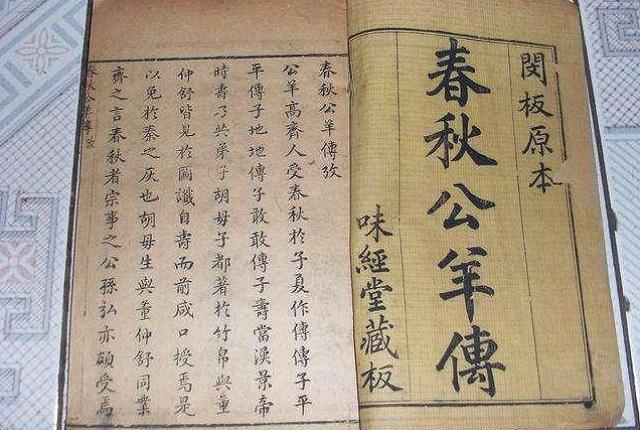 閔板原本
春秋公羊傳
味經堂藏板
春秋公羊傳攷
公羊髙齊人受春秋於子夏作傳傳子平
平傳子地地傳子敢敢傳子壽當漢景帝
時壽乃共弟子胡母子都著於竹帛與董
仲舒皆見於圖讖自壽而前咸口授焉是
以免於秦之灰也胡母生與董仲舒同業
齊之言春秋者宗事之公孫弘亦頗受焉
春秋公羊傳攷